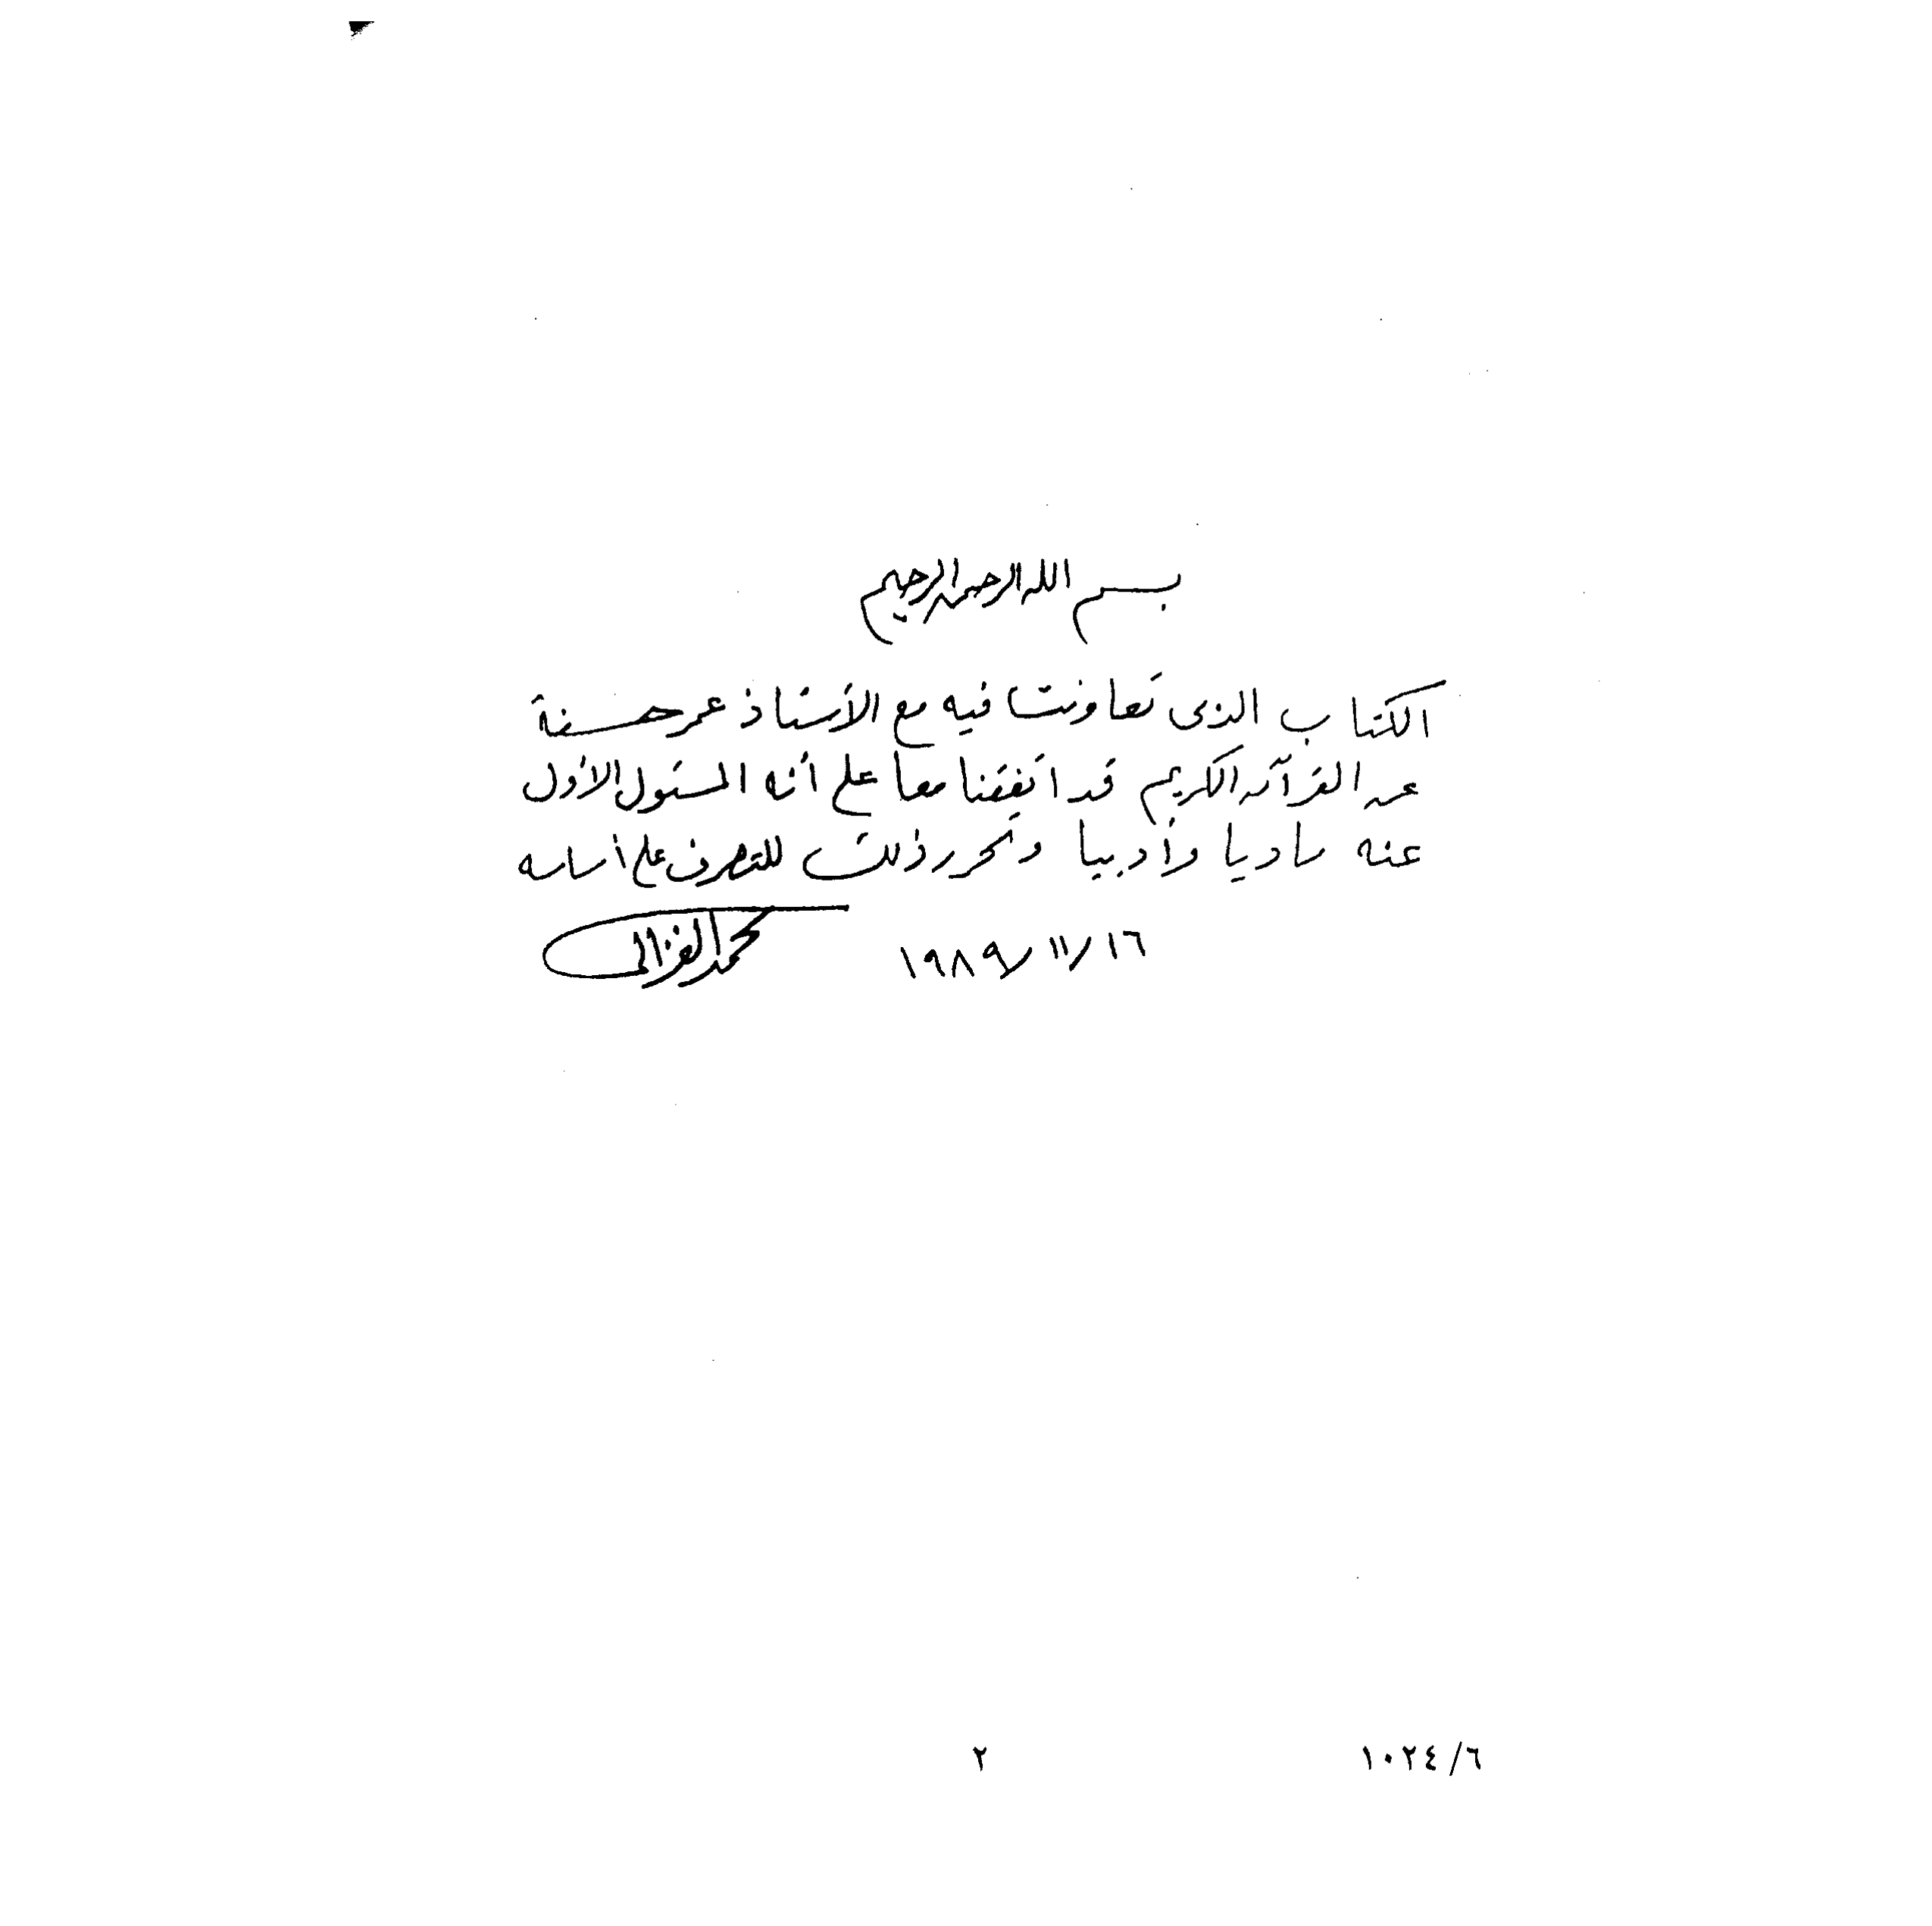 بسم الله الرحمن الرحيم
الكتاب الذى تعاونت فيه مع الأستاذ عمر حسنة
عن القرآن الكريم قد اتفقنا معا على أنه المسئول الأول
عنه ماديا وأدبيا وتحرر ذلك للتصرف على أساسه
١٦/ ١١/ ١٩٨٩ محمد الغزالى
٦/ ١٠٢٤ ٢